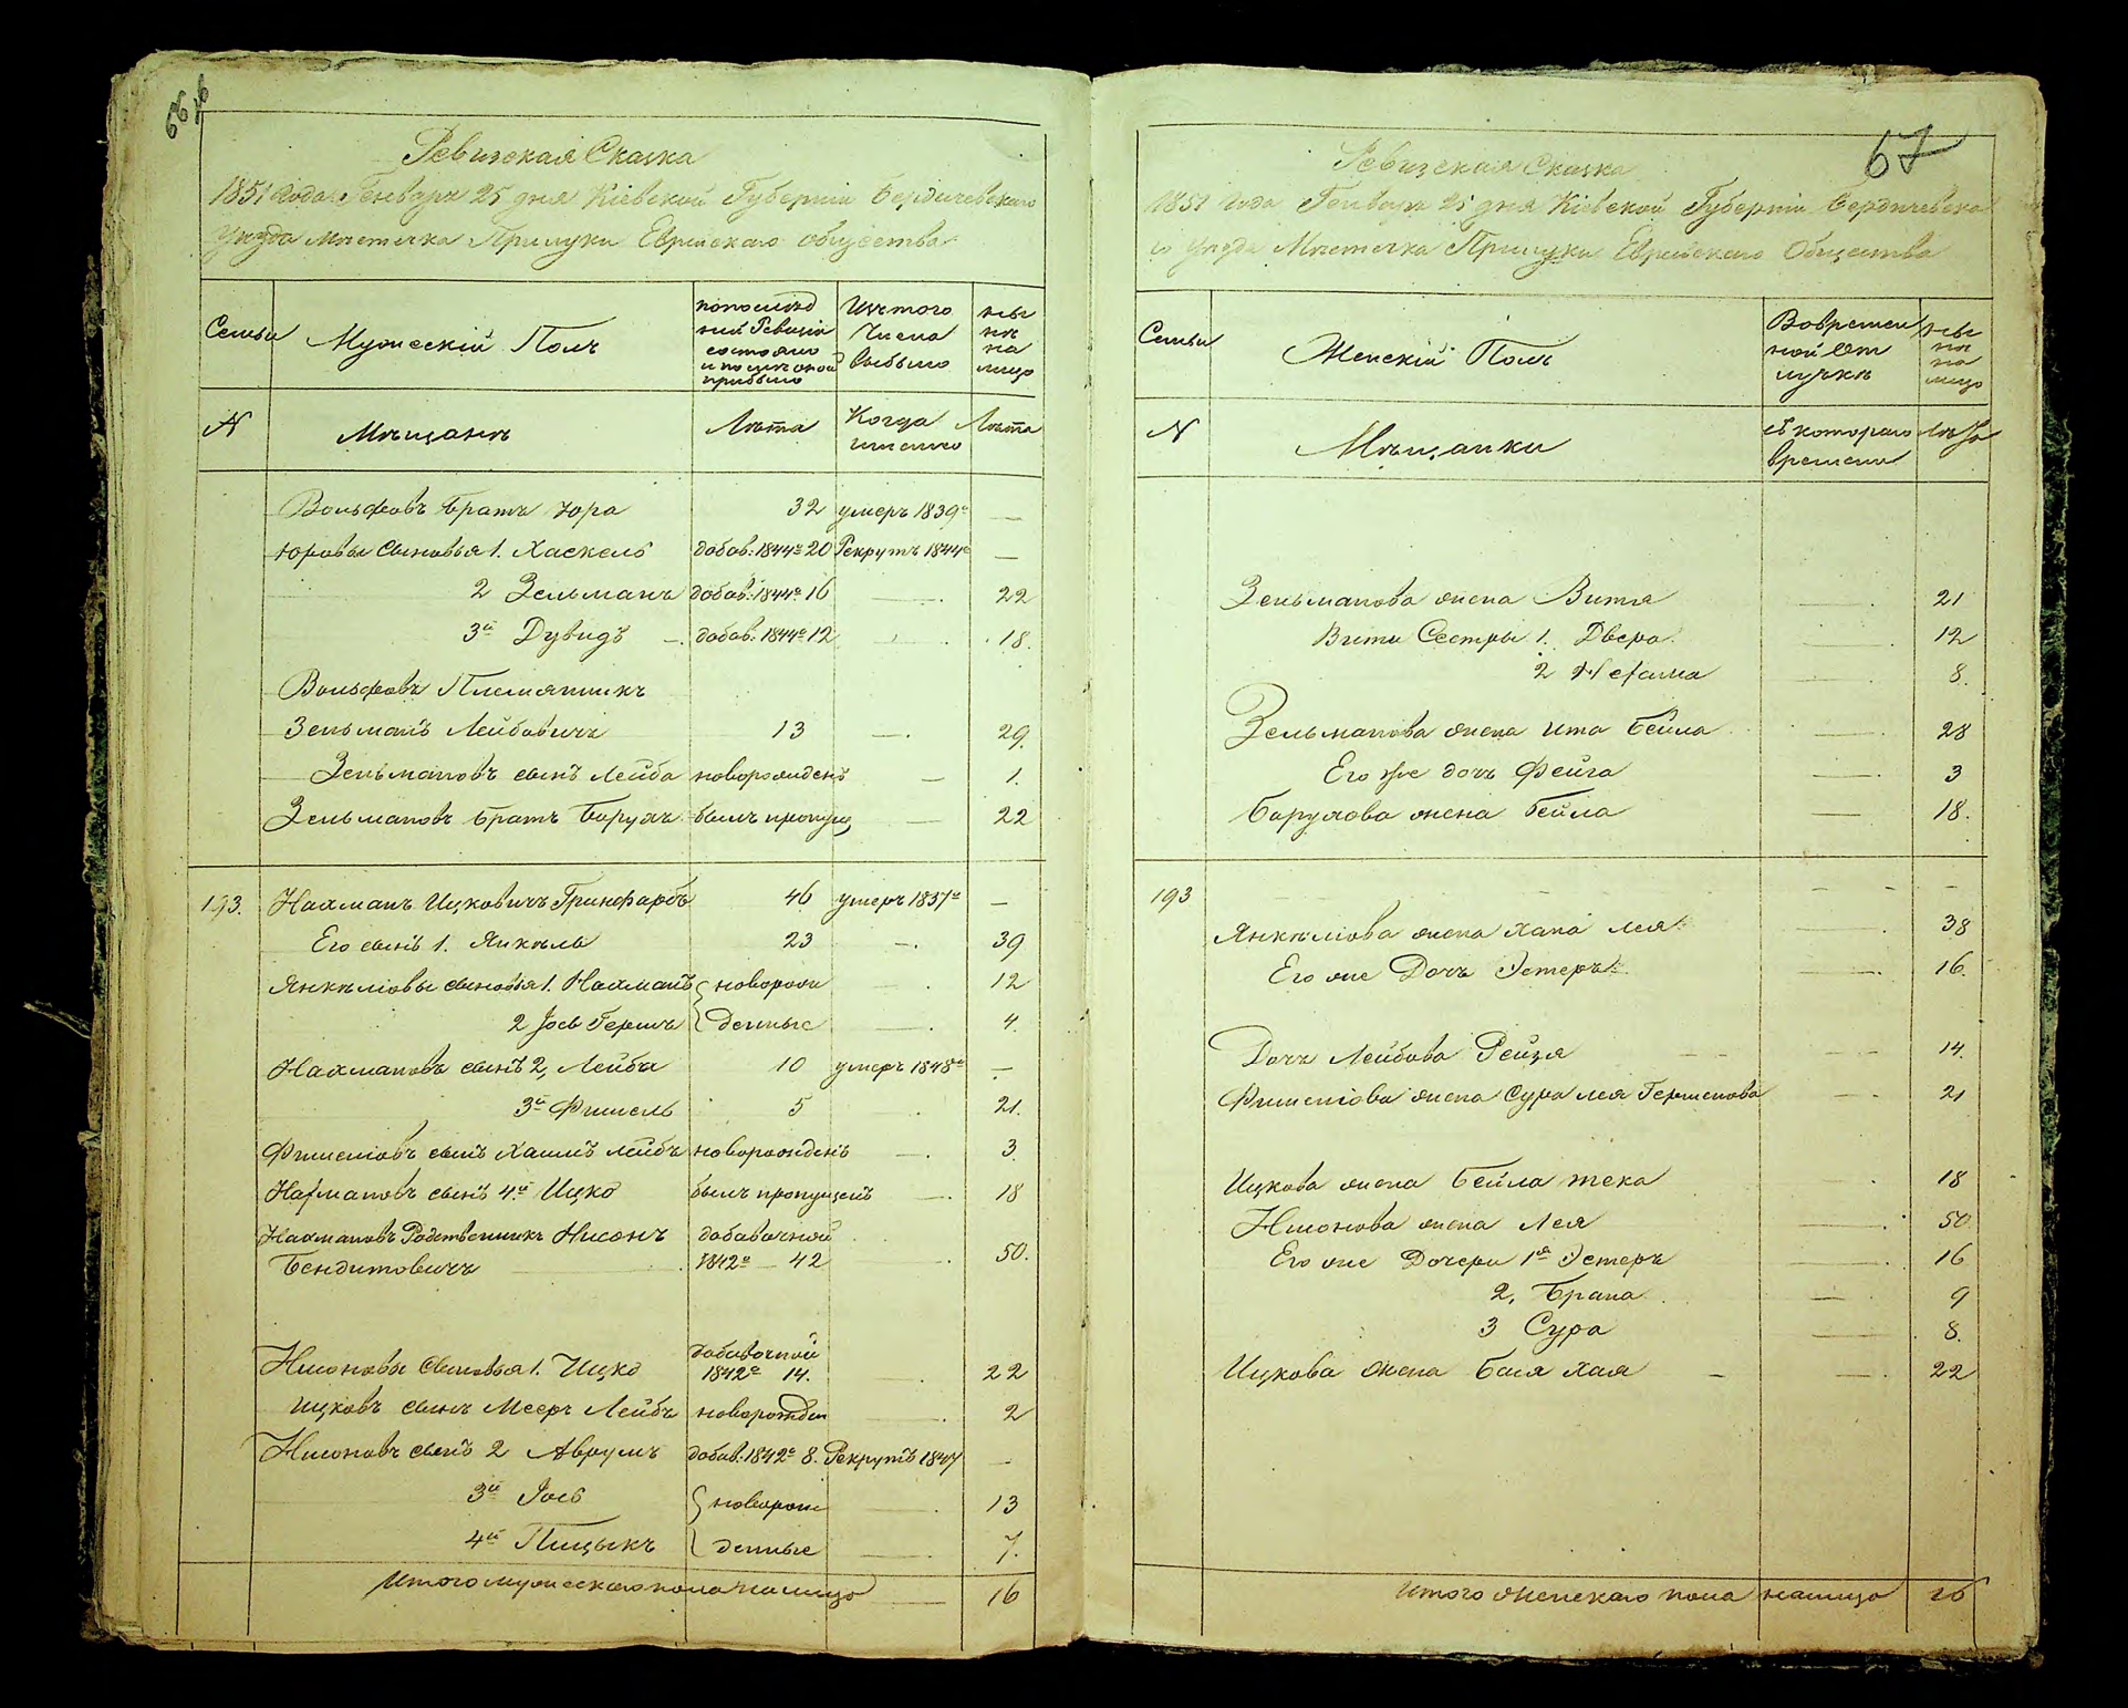 66
Ревизская Сказка
1851 Года Генваря 25 дня Кіевской Губерніи Бердичевскаго
Уезда мястечка Прилуки Еврейскаго общества
Семьи
Мужескій Полъ
попослѣд
ней Ревизіи
состояло
и после оной
прибыло
Изъ того
Числа
выбыло
ны
нѣ
на
лицо
N
Мѣщанъ
Лѣта
Когда
именно
Лѣта
Вольфовъ братъ Юра 32 умеръ 1839г —
Юровы сыновья 1. Хаскель добав: 1844г 20 Рекрутъ 1844г —
2 Зельманъ добав: 1844г 16 — 22
3й Дувидъ — добав: 1844г 12 — 18.
Вольфовъ Племянникъ
Зельманъ Лейбовичъ 13 — 29.
Зельмановъ сынъ Лейба новорожденъ — 1.
Зельмановъ братъ Борухъ былъ пропущ — 22
193. Нахманъ Ицковичъ Гринфарбъ 46 умеръ 1837г —
Его сынъ 1. Янкель 23 — 39
Янкеліовы сыновья 1. Нахманъ новорож — 12
2 Іось Гершъ денные — 4.
Нахмановъ сынъ 2, Лейба 10 умеръ 1848го —
3й Фишель 5 21.
Фишеліовъ сынъ Хаимъ Лейбъ новорожденъ — 3.
Нахмановъ сынъ 4й Ицко былъ пропущенъ — 18
Нахмановъ Родственникъ Нисонъ добавочной
Бендитовичъ 1842г — 42 50.
Добавочной
Нисоновы Сыновья 1. Ицко 1842г 14. — 22
Ицковъ сынъ Мееръ Лейбъ новорожден — 2
Нисоновъ сынъ 2 Аврумъ добав: 1842г 8. Рекрутъ 1847 —
3й Іось новорож — 13
4й Пицыкъ денные — 7.
Итого мужескаго пола налицо — 16
67
Ревизская Сказка
1851 Года Генваря 25 дня Кіевской Губерніи Бердичевска
го уезда Мястечка Прилуки Еврейскаго Общества
Семьи
Женскій Полъ
Вовремен
ной От
лучкѣ
ны
нѣ
на
лицо
N
Мѣщанки
съ котораго
времени
Лѣта
Зельманова жена Витя — 21
Вити Сестры 1. Двера — 12
2 Нехама — 8.
Зельманова жена Ита Бейла — 28
Его же дочь Фейга — 3
Борухова жена Бейла — 18.
193 — — —
Янкеліова жена Хана Лея — 38
Его же Дочь Эстеръ — 16.
Дочь Лейбова Рейзя — 14.
Фишеліова жена Сура Лея Гершкова — 21
Ицкова жена Бейла — 18
Нисонова жена Лея — 50
Его же Дочери 1я Эстеръ — 16
2, Брана — 9
3 Сура — 8.
Ицкова жена Бася Хая — 22
Итого женскаго пола налицо 16